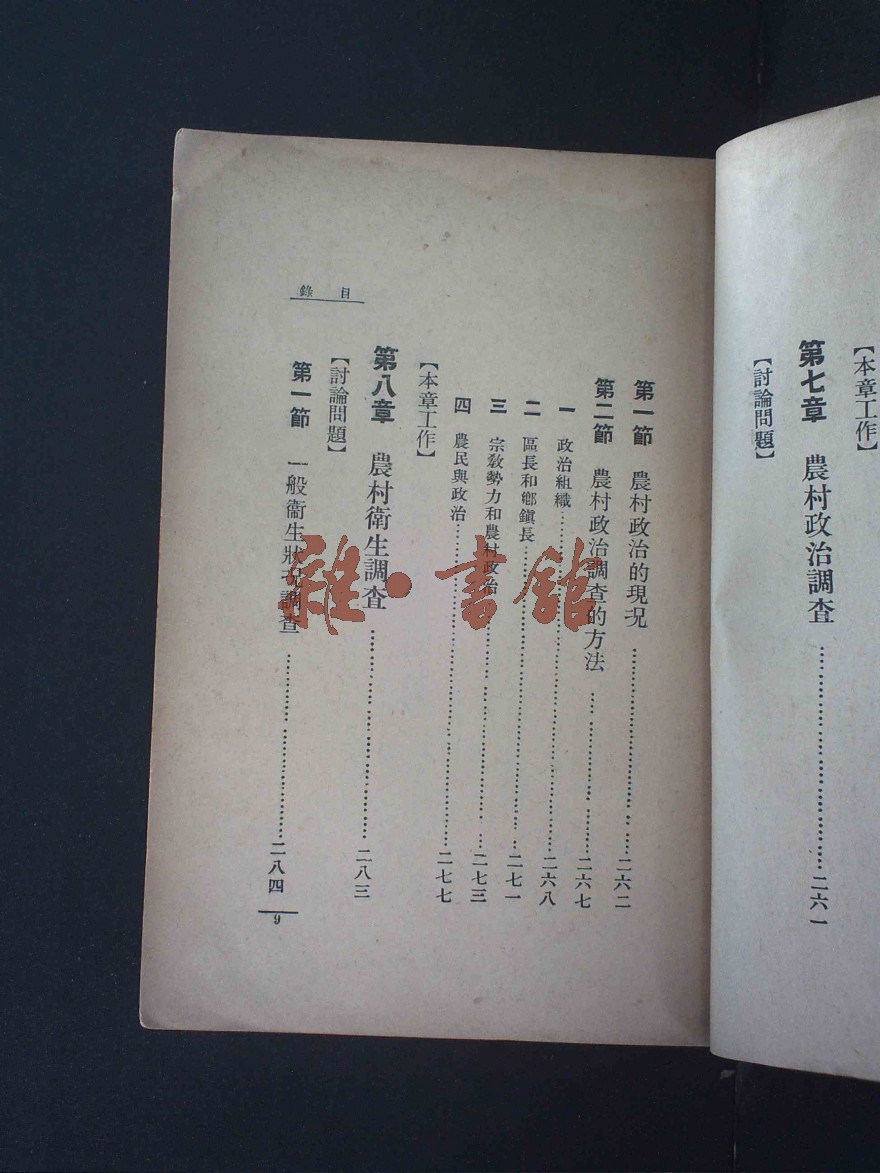 【本章工作】
第七章　農村政治調查……二六一
【討論問題】
目錄
第一節　農村政治的現况……二六二
第二節　農村政治調查的方法……二六七
一　政治組織……二六八
二　區長和鄉鎭長……二七一
三　宗敎勢力和農村政治……二七三
四　農民與政治……二七七
【本章工作】
第八章　農村衛生調查……二八三
【討論問題】
第一節　一般衞生狀况調查……二八四
9
雜·書館